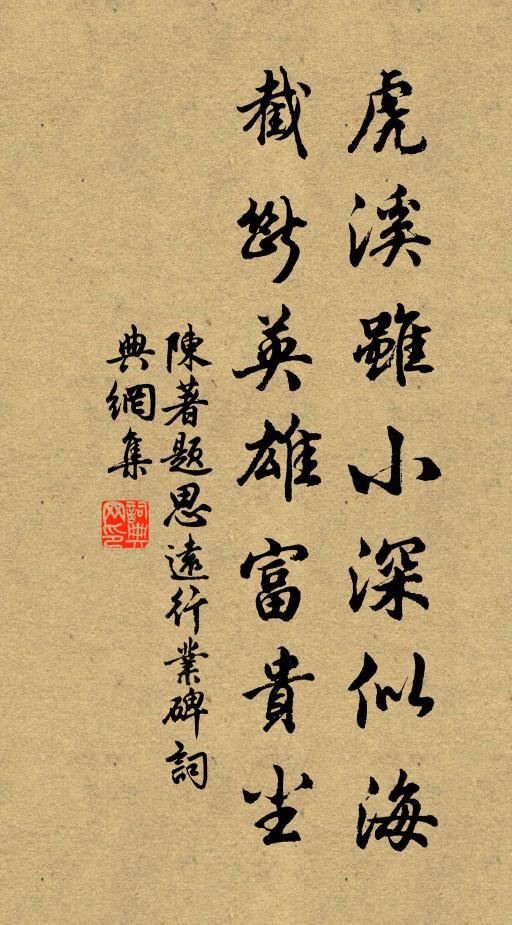 虎溪雖小深似海
截斷英雄富貴尘
陳著題思遠行業碑詞
典網集
詞典
网印